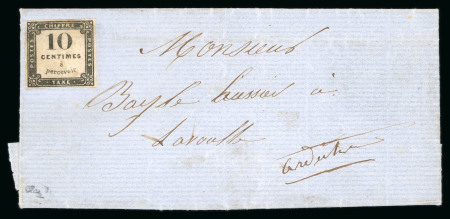 CHIFFRE
POSTES
10
CENTIMES
à
PERCEVOIR
TAXE
Monsieur
Bayle huissier à
Lavoulte
ardèche